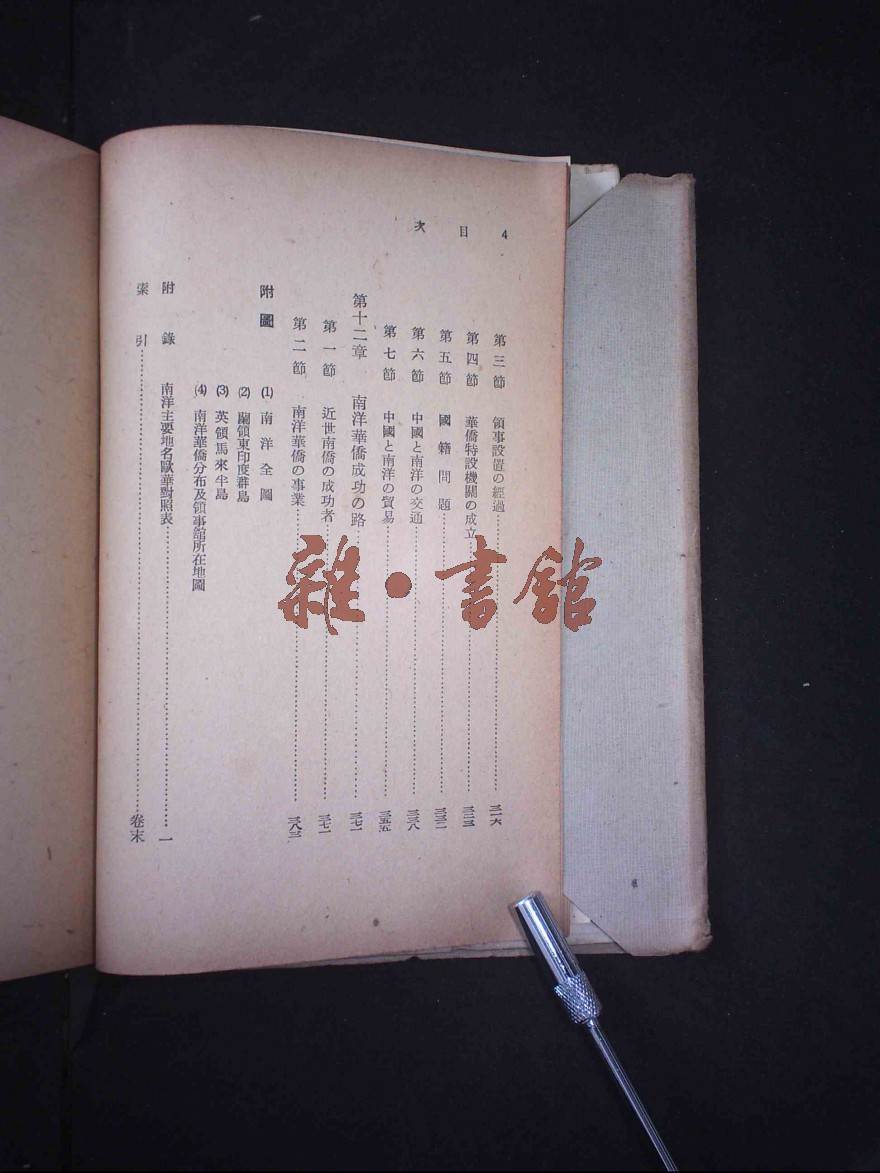 4 目次
第三節 領事設置の經過 三一六
第四節 華僑特設機關の成立 三二三
第五節 國籍問題 三三二
第六節 中國と南洋の交通 三三八
第七節 中國と南洋の貿易 三五五
第十二章 南洋華僑成功の路 三七一
第一節 近世南僑の成功者 三七一
第二節 南洋華僑の事業 三八三
附圖 (1) 南洋全圖
(2) 蘭領東印度群島
(3) 英領馬來半島
(4) 南洋華僑分布及領事館所在地圖
附錄 南洋主要地名歐華對照表 一
索引 卷末
雜·書館